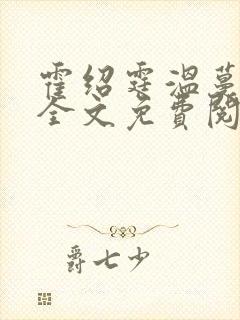 霍绍霆温蔓
全文免费阅
爵七少